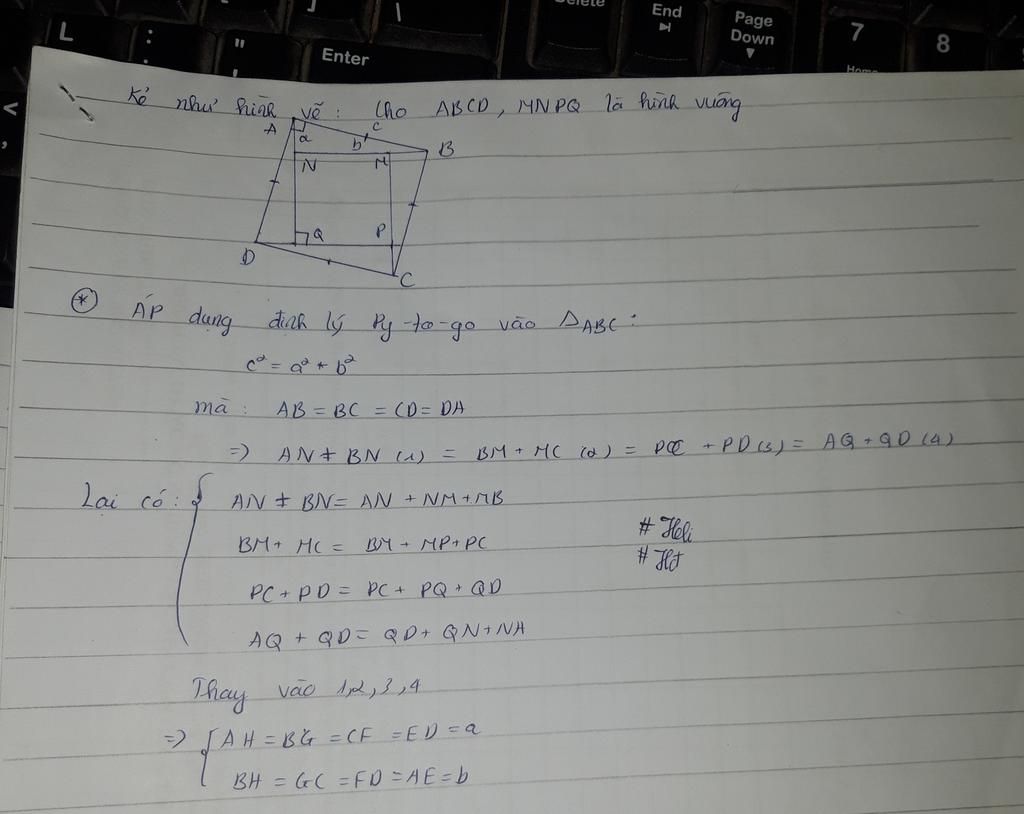 L
:
;
"
'
Enter
]
\
Delete
End
Page
Down
7
8
Home
<
,
Kẻ như hình vẽ: Cho ABCD, MNPQ là hình vuông
A
a
c
b
B
N
M
Q
P
D
C
* ÁP dụng định lý Py-to-go vào ΔABC:
c² = a² + b²
mà: AB = BC = CD = DA
=> AN + BN (1) = BM + MC (2) = PC + PD (3) = AQ + QD (4)
Lại có: { AN + BN = AN + NM + MB
BM + MC = BM + MP + PC
# Heli
PC + PD = PC + PQ + QD
AQ + QD = QD + QN + NA
Thay vào 1,2,3,4
=> { AH = BG = CF = ED = a
BH = GC = FD = AE = b